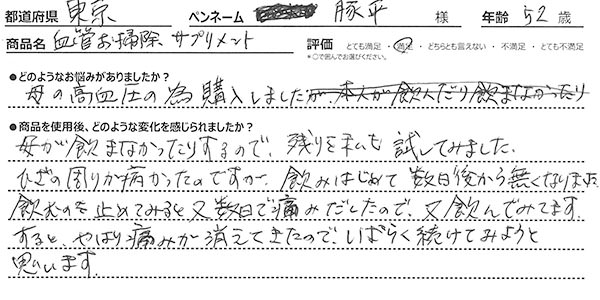 都道府県 東京 ペンネーム 豚平 様 年齢 52 歳
商品名 血管お掃除サプリメント 評価 とても満足・満足・どちらとも言えない・不満足・とても不満足
*○で囲んでお選びください。
●どのようなお悩みがありましたか?
母の高血圧の為購入しましたが、本人が飲んだり飲まなかったり
●商品を使用後、どのような変化を感じられましたか?
母が飲まなかったりするので、残りを私も試してみました。
ひざの周りが痛かったのですが、飲みはじめて数日後から無くなりました。
飲むのを止めてみると又数日で痛みだしたので、又飲んでみてます
すると、やはり痛みが消えてきたので、しばらく続けてみようと
思います。